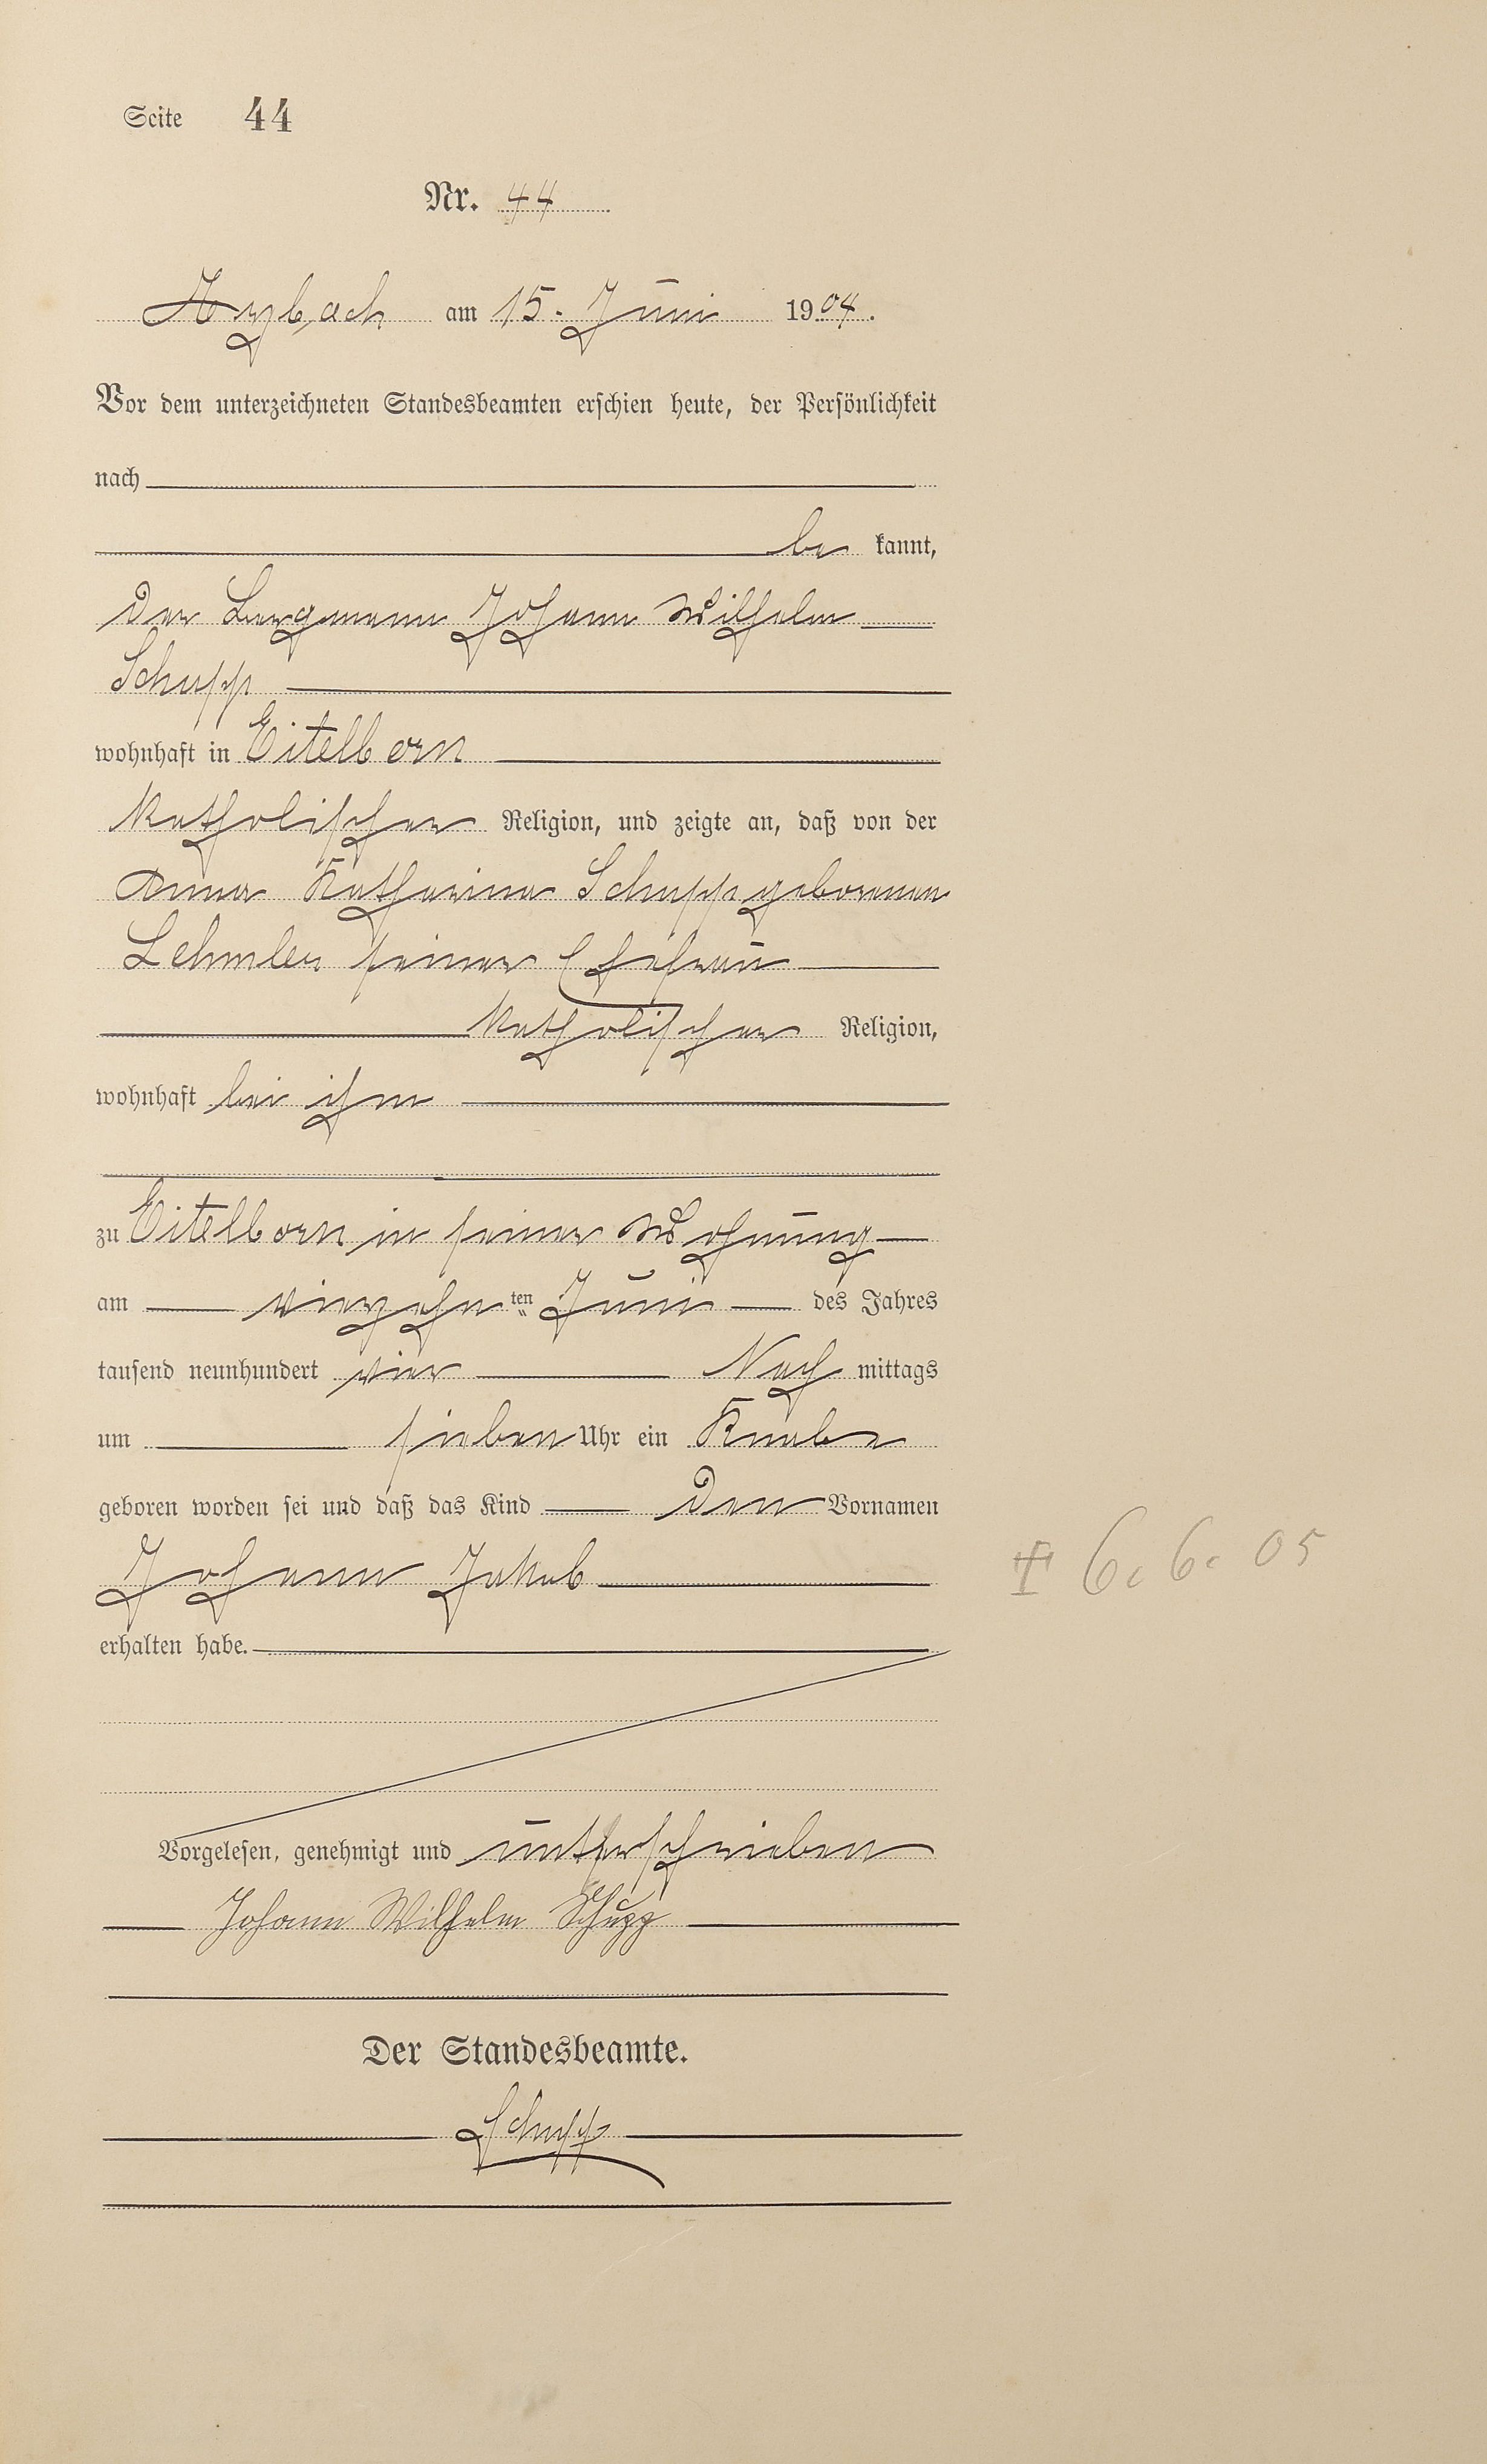 Seite 44
Nr. 44
Arzbach am 15. Juni 1904.
Vor dem unterzeichneten Standesbeamten erschien heute, der Persönlichkeit
nach
be kannt,
der Bergmann Johann Wilhelm
Schupp
wohnhaft in Eitelborn
katholischer Religion, und zeigte an, daß von der
Anna Katharina Schupp geborenen
Lehmler seiner Ehefrau
katholischer Religion,
wohnhaft bei ihm
zu Eitelborn in seiner Wohnung
am vierzehn ten Juni des Jahres
tausend neunhundert vier Nach mittags
um sieben Uhr ein Knabe
geboren worden sei und daß das Kind den Vornamen
Johann Jakob
† 6. 6. 05
erhalten habe.
Vorgelesen, genehmigt und unterschrieben
Johann Wilhelm Schupp
Der Standesbeamte.
Schupp